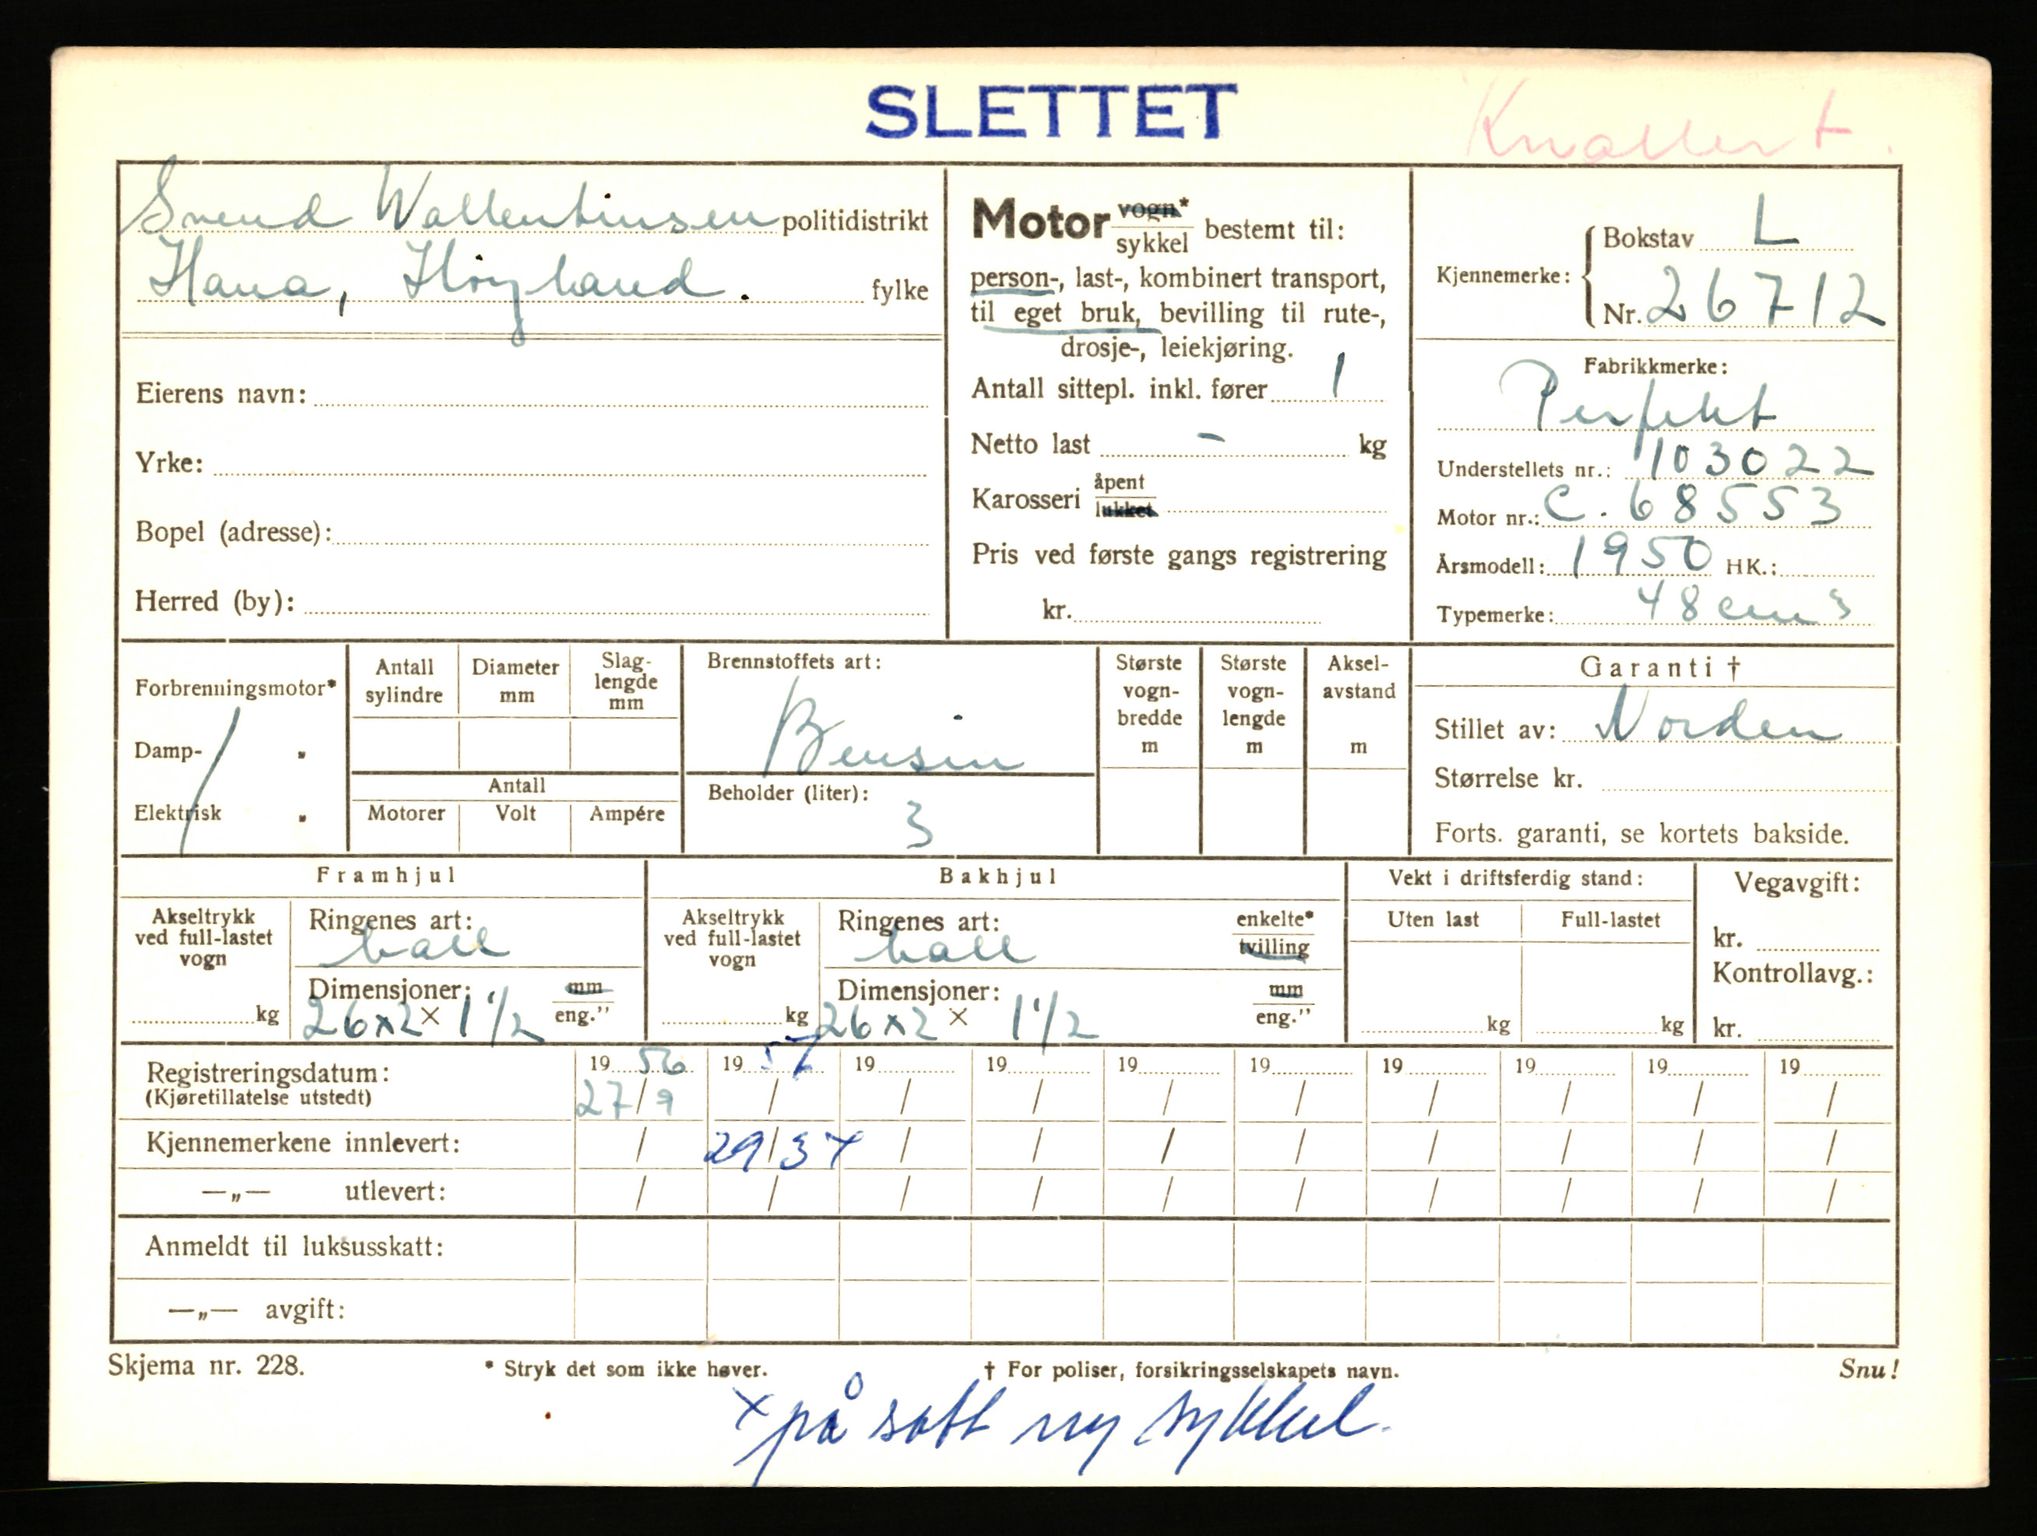 SLETTET
Knallert.
Svend Wallentinsen politidistrikt
Hana, Høyland. fylke
Eierens navn:
Yrke:
Bopel (adresse):
Herred (by):
Motor vogn* sykkel bestemt til:
person-, last-, kombinert transport,
til eget bruk, bevilling til rute-,
drosje-, leiekjøring.
Antall sittepl. inkl. fører 1
Netto last - kg
Karosseri åpent lukket
Pris ved første gangs registrering
kr.
Kjennemerke: Bokstav L
Nr. 26712
Fabrikkmerke:
Perfekt
Understellets nr.: 103022
Motor nr.: C. 68553
Årsmodell: 1950 HK.:
Typemerke: 48 cm3
Forbrenningsmotor*
Damp- "
Elektrisk "
Antall sylindre
Diameter mm
Slag-lengde mm
Antall
Motorer Volt Ampére
Brennstoffets art:
Bensin
Beholder (liter):
3
Største vogn-bredde m
Største vogn-lengde m
Aksel-avstand m
Garanti †
Stillet av: Norden
Størrelse kr.
Forts. garanti, se kortets bakside.
Framhjul
Akseltrykk ved full-lastet vogn
kg
Ringenes art:
ball
Dimensjoner: mm eng."
26x2 x 1 1/2
Bakhjul
Akseltrykk ved full-lastet vogn
kg
Ringenes art: enkelte* tvilling
ball
Dimensjoner: mm eng."
26x2 x 1 1/2
Vekt i driftsferdig stand:
Uten last Full-lastet
kg kg
Vegavgift:
kr.
Kontrollavg.:
kr.
Registreringsdatum: 1956 1957 19 19 19 19 19 19 19 19
(Kjøretillatelse utstedt) 27/9 / / / / / / / / /
Kjennemerkene innlevert: / 29/3 x / / / / / / / /
—„— utlevert: / / / / / / / / / /
Anmeldt til luksusskatt:
—„— avgift:
Skjema nr. 228.
* Stryk det som ikke høver.
† For poliser, forsikringsselskapets navn.
Snu!
x på satt ny sykkel.